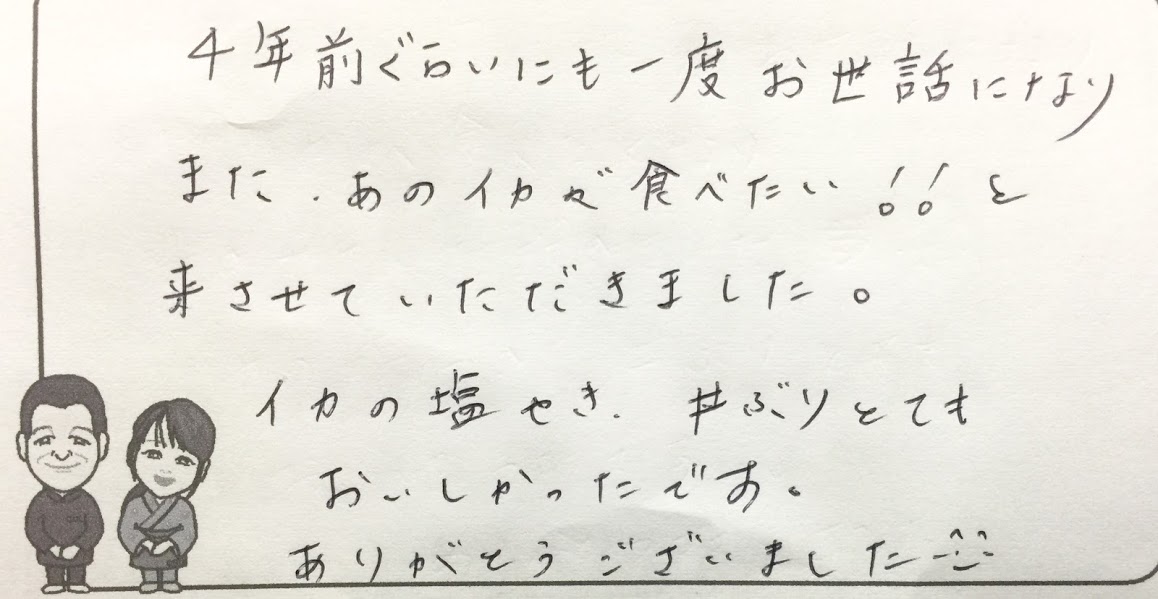 4年前ぐらいにも一度お世話になり
また、あのイカが食べたい!!と
来させていただきました。
イカの塩やき、丼ぶりとても
おいしかったです。
ありがとうございました